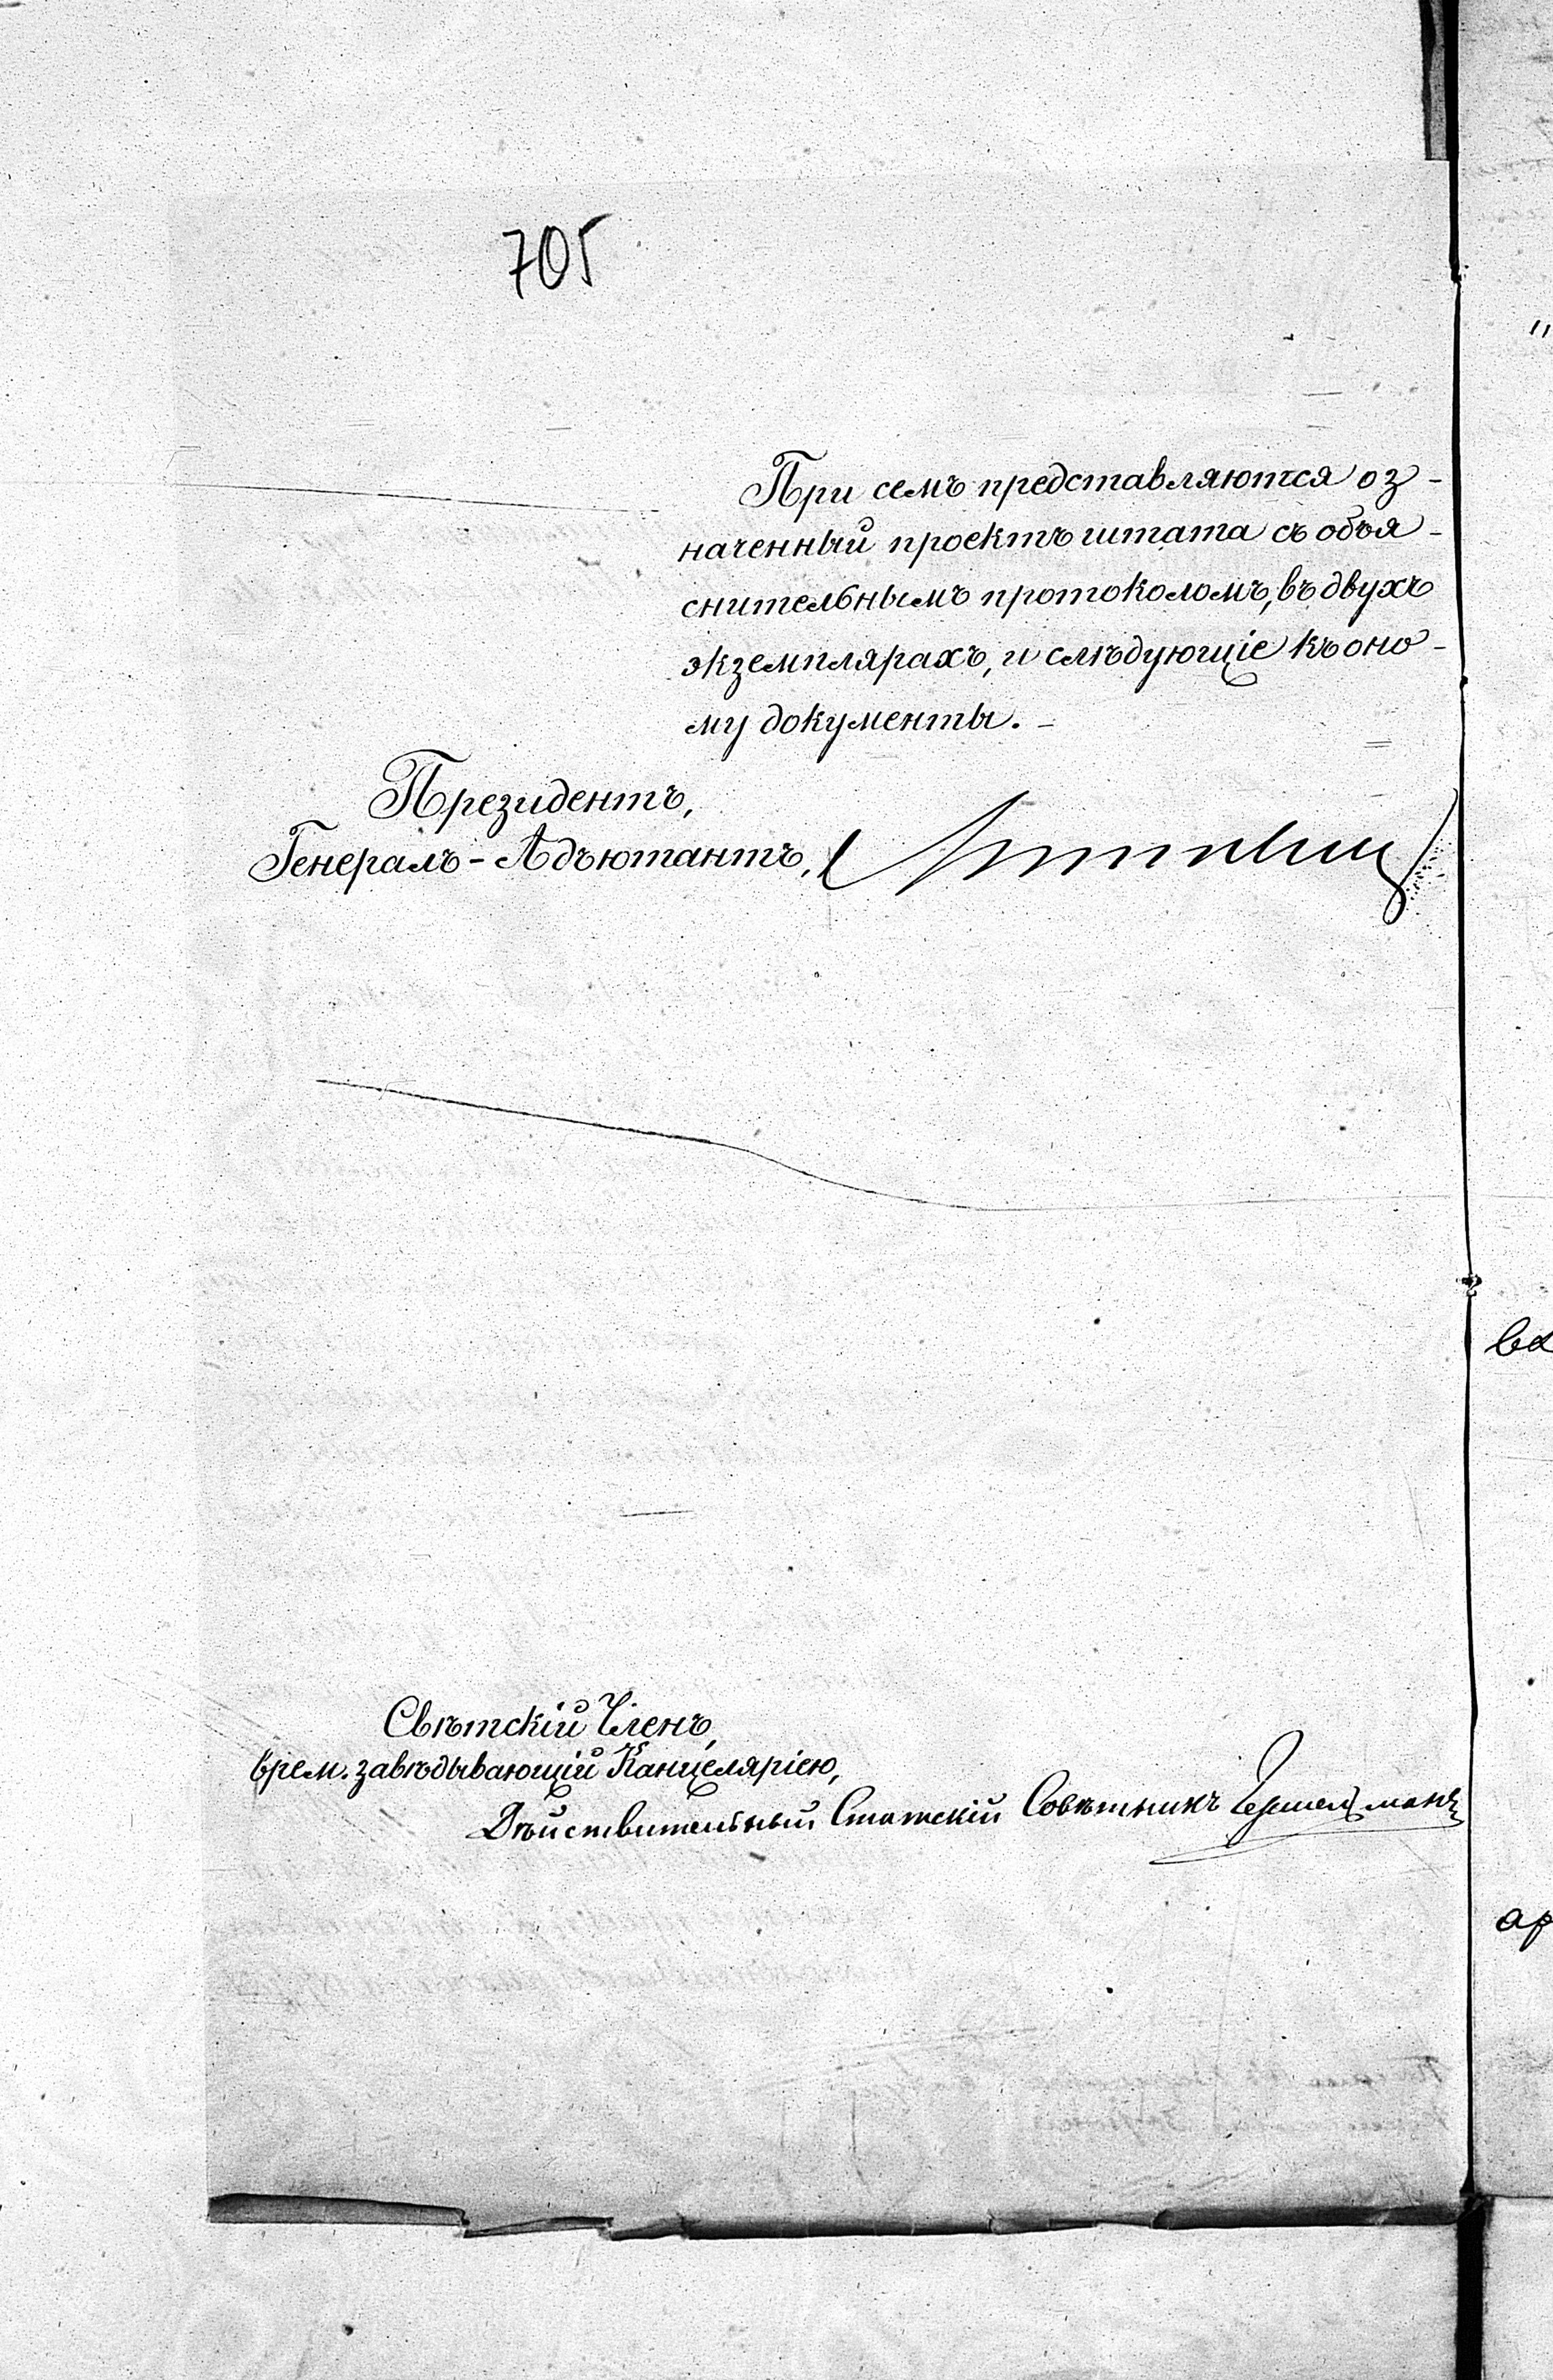 705
При семъ представляются оз-
наченный проектъ штата съ объя-
снительнымъ протоколомъ, въ двухъ
экземплярахъ, и слѣдующіе къ оно-
му документы. -
Президентъ,
Генералъ-Адъютантъ,
Свѣтскій Членъ,
врем. завѣдывающій Канцеляріею,
Дѣйствительный Статскій Совѣтникъ
ва
ар